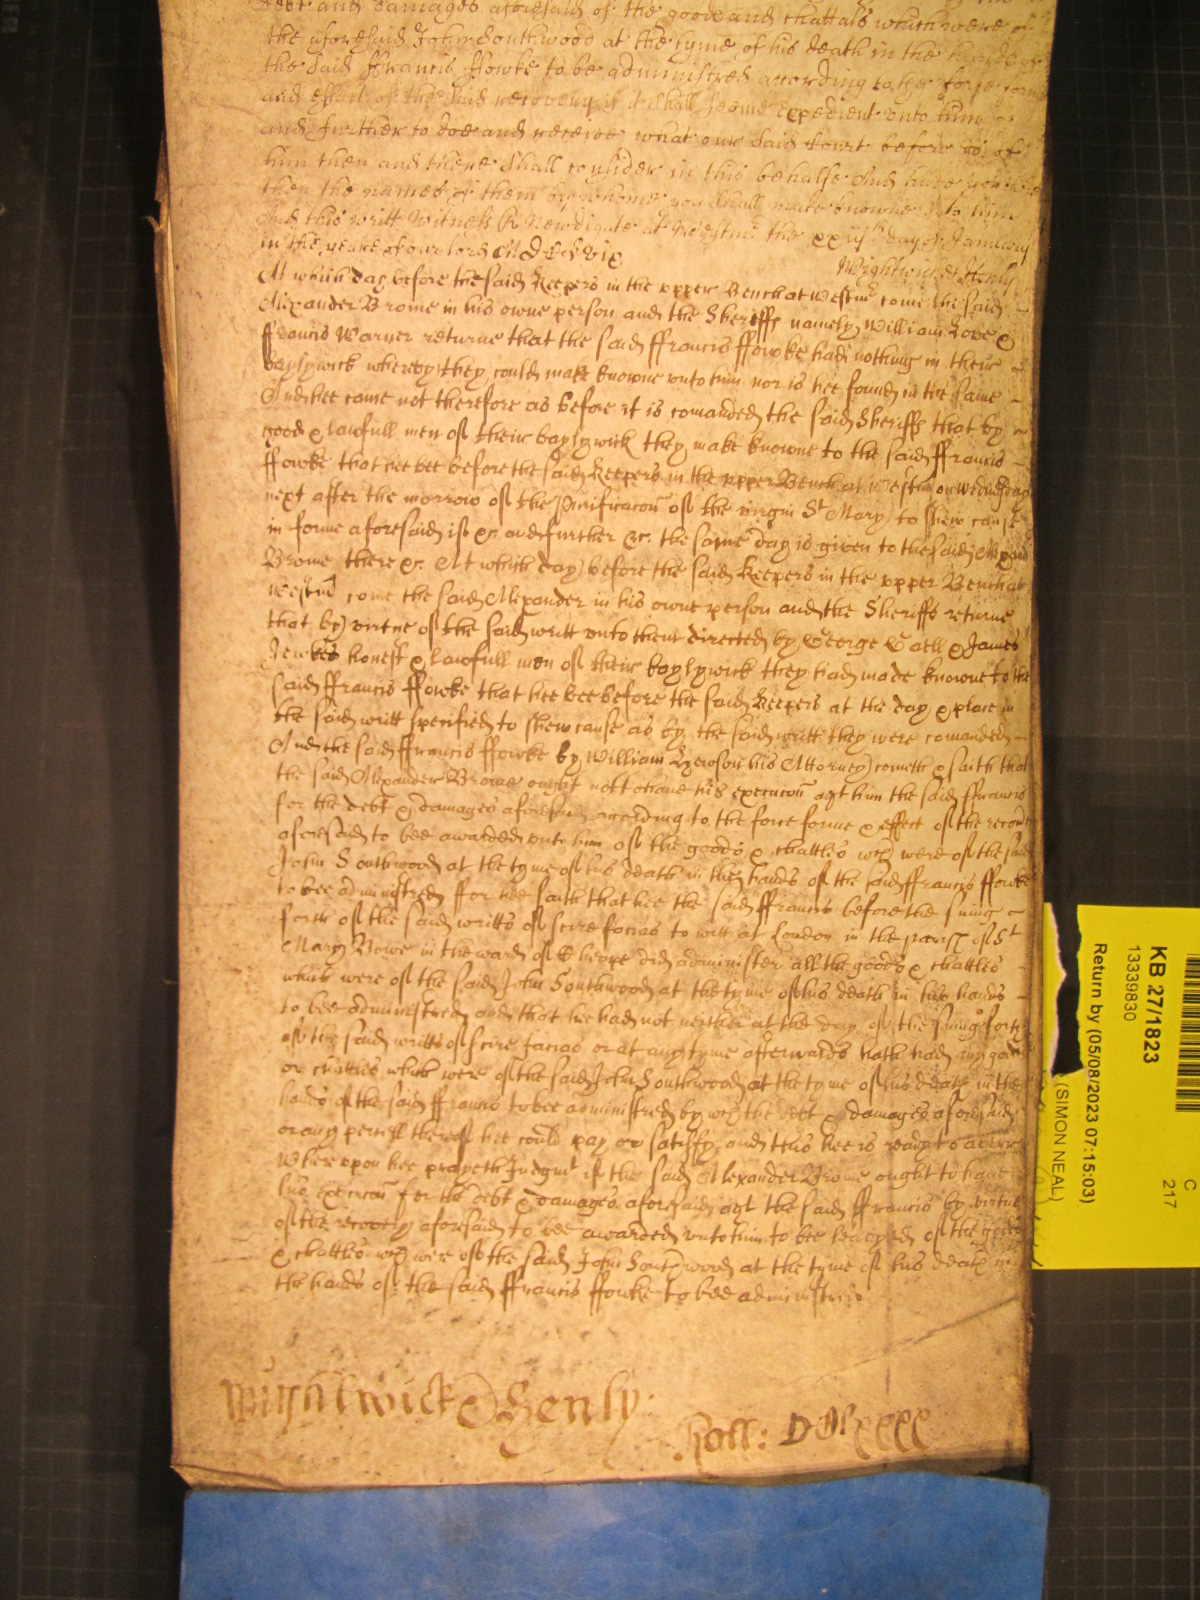 debt and damages aforesaid of the goods and chattals which were of
the aforesaid John Southwood at the tyme of his death in the hands of
the said Ffrancis Ffowke to be administred according to the force forme
and effect of the said recovery if it shall seeme expedient unto him
and further to doe and receive what our said Court before us of
him then and there shall consider in this behalfe And have you there
then the names of them by whome you shall make knowne unto him
And this writt Witness R Newdigate at Westmr the xxiijth day of January
in the yeare of our lord MDCLvix
Wightwick & Henly
At which day before the said Keepers in the upper Bench at Westmr come the said
Alexander Brome in his owne person and the Sheriffs namely William Love &
Ffrancis Warner returne that the said Ffrancis Ffowke had nothing in their
baylywick whereby they could make knowne unto him nor is hee found in the same
And hee came not therefore as before it is comanded the said Sheriffs that by
good & lawfull men of their baylywick they make knowne to the said Ffrancis
Ffowke that hee bee before the said Keepers in the upper Bench at Westmr on Wednesday
next after the morrow of the Purificacon of the virgin St Mary to shew cause
in forme aforesaid if &c and further &c the same day is given to the said Alexand
Brome there &c At which day before the said Keepers in the upper Bench at
Westmr come the said Alexander in his owne person and the Sheriffs returne
that by virtue of the said writt unto them directed by George Caell & James
Jenkes honest & lawfull men of their baylywick they had made knowne to the
said Ffrancis Ffowke that hee bee before the said Keepers at the day & place in
the said writt specified to shew cause as by the said writt they were comanded
And the said Ffrancis Ffowke by William Hewson his Attorney cometh & saith that
the said Alexander Brome ought not to have his execucon agt him the said Ffrancis
for the debt & damages aforesaid according to the force forme & effect of the recovery
aforesaid to bee awarded unto him of the goods & chattles wch were of the said
John Southwood at the tyme of his death in the hands of the said Ffrancis Ffowke
to bee administred Ffor hee saith that hee the said Ffrancis before the suing
forth of the said writts of scire facias to witt at London in the parish of St
Mary Bowe in the ward of Cheape did administer all the goods & chattles
which were of the said John Southwood at the tyme of his death in his hands
to bee administred and that hee had not neither at the day of the suing forth
of the said writts of scire facias or at any tyme afterwards hath had any goods
or chattles which were of the said John Southwood at the tyme of his death in the
hands of the said Ffrancis to bee administred by wch the debt & damages aforesaid
or any percell thereof hee could pay or satisfy and this hee is ready to averre
Whereupon hee prayeth Judgmt if the said Alexander Brome ought to have
his execucon for the debt & damages aforesaid agt the said Ffrancis by virtue
of the recovery aforesaid to bee awarded unto him to bee leavyed of the goods
& chattles wch were of the said John Southwood at the tyme of his death in
the hands of the said Ffrancis Ffowke to bee administred
Wightwick & Henly
Roll:
KB 27/1823
13339830
Return by (05/08/2023 07:15:03)
(SIMON NEAL)
C
217